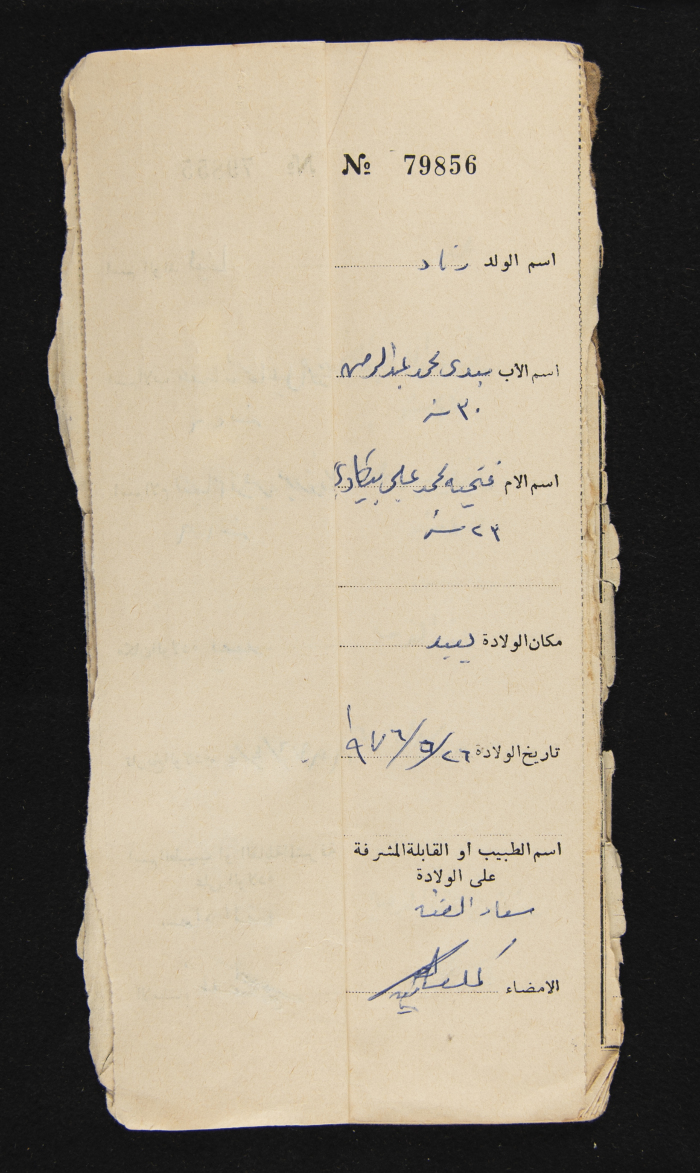 № 79856
اسم الولد رناد
اسم الاب سعدى محمد عبدالرحمن
٣٠ سنة
اسم الام فتحيه محمد علي
٢٣ سنة
مكان الولادة يعبد
تاريخ الولادة ٢٦/٦/١٩٧٦
اسم الطبيب او القابلة المشرفة
على الولادة
سعاد
الامضاء